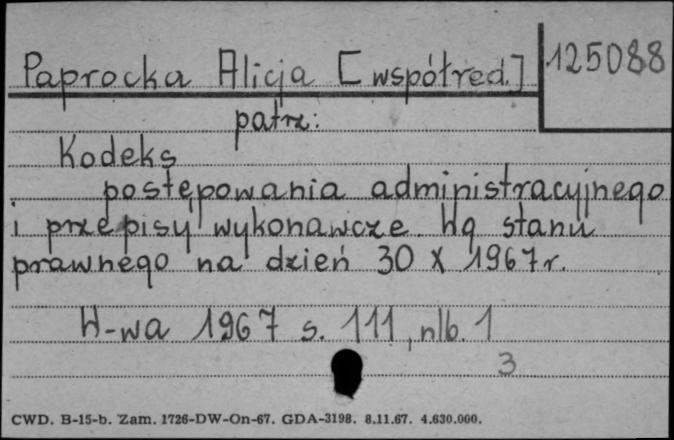 Paprocka Alicja [współred.] 125088
patrz:
Kodeks
postępowania administracyjnego
i przepisy wykonawcze. Wg stanu
prawnego na dzień 30 X 1967 r.
W-wa 1967 s. 111, nlb. 1
3
CWD. B-15-b. Zam. 1726-DW-On-67. GDA-3198. 8.11.67. 4.630.000.